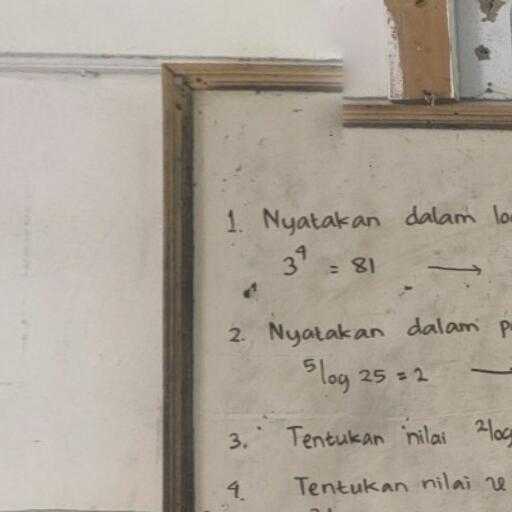 1. Nyatakan dalam lo
3⁴ = 81 →
2. Nyatakan dalam p
⁵log 25 = 2 →
3. Tentukan nilai ²log
4. Tentukan nilai